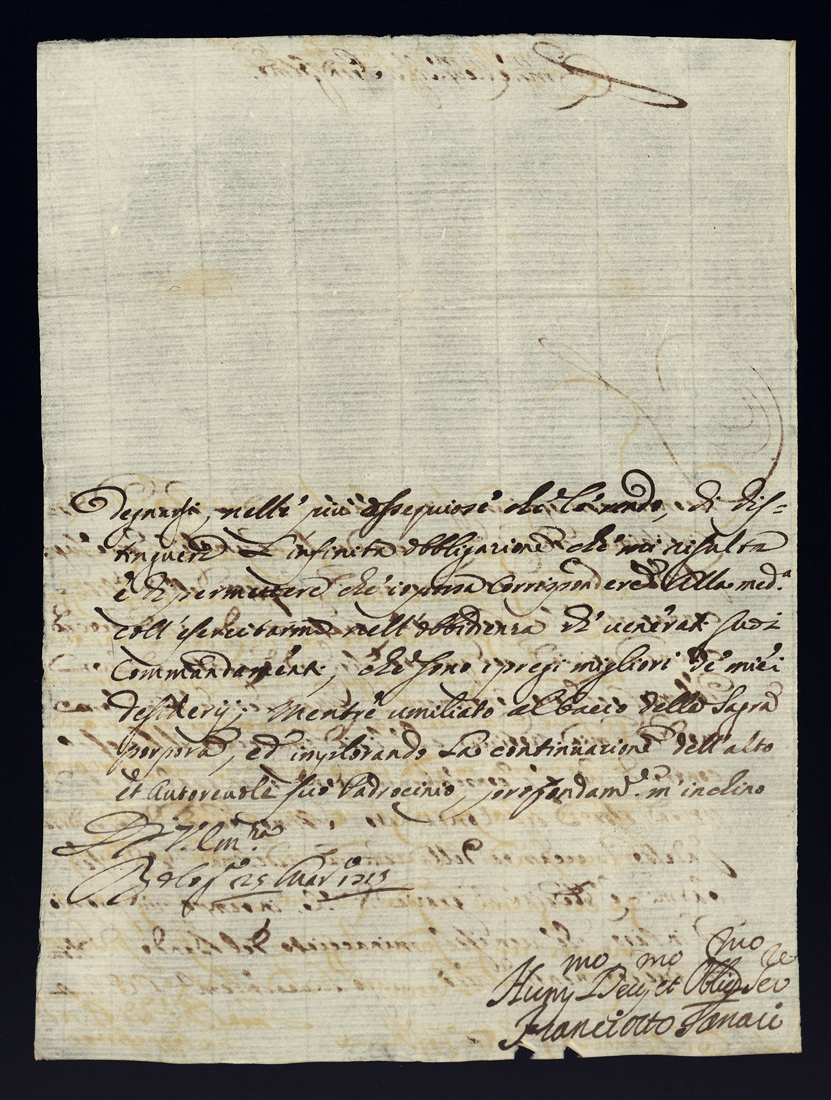 degnarsi, nelle più ossequiose che la rendo, di dis-
tinguere l'infinita obbligazione che mi risulta
e di permettere che io possa corrispondere alla med.a
coll'esercitarmi nell'obbidienza de venerati suoi
Commandamenti, che sono i pregi migliori de miei
desiderij; Mentre umiliato al bacio della Sagra
porpora, ed implorando la continuazione dell'alto
et autorevole suo Padrocinio, profondam.e m'inclino
Di V. Em.za
Bolog.a 25 Mar.o 1713
Hum.mo Dev.mo et Oblig.mo Ser.e
Franciotto Tanari